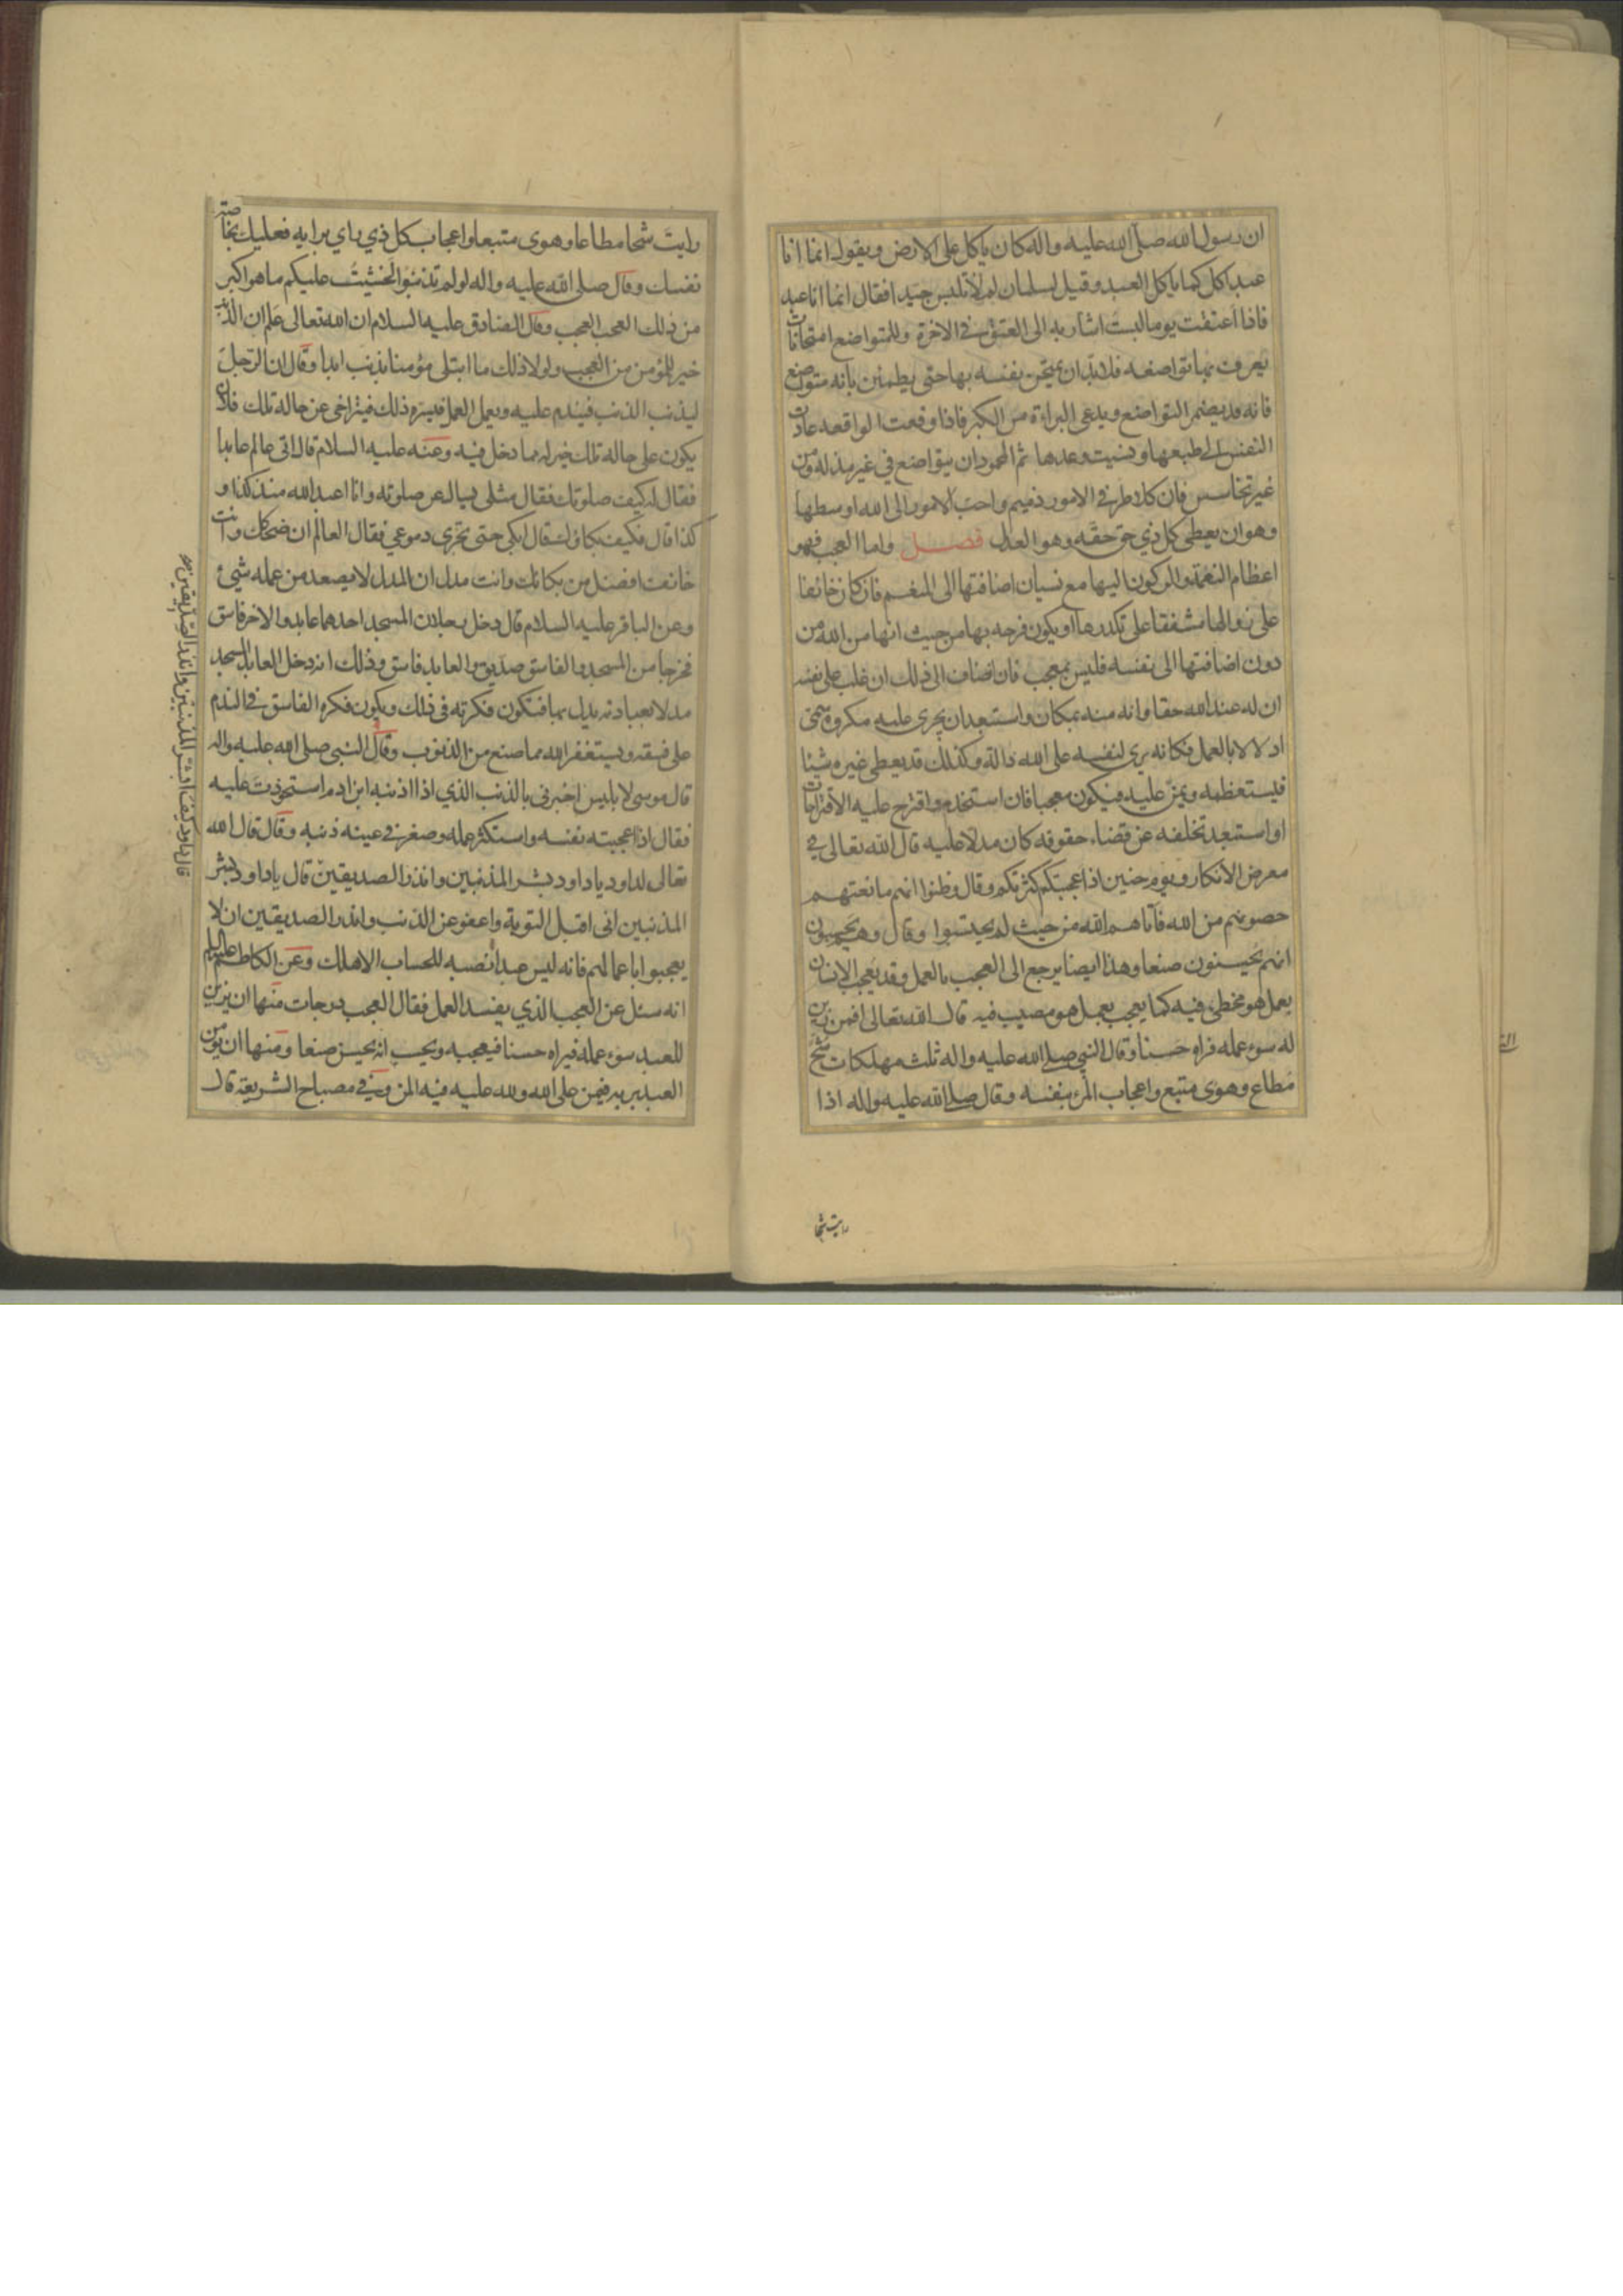 ان رسول الله صلى الله عليه واله كان ياكل على الارض ويقول انما انا
عبد اكل كما ياكل العبد وقيل لسلمان لم لا تلبس جيدا فقال انما انا عبد
فاذا اعتقت يوما لبست اشار به الى العتق في الاخرة وللمتواضع امتحانات
يعرف بها تواضعه فلا بد ان يمتحن نفسه بها حتى يطمئن بانه متواضع
فانه قد يضمر التواضع ويدعى البراءة من الكبر فاذا وقعت الواقعه عادت
النفس الى طبعها ونسيت وعدها ثم المحمود ان يتواضع في غير مذلة ومن
غير تخاسس فان كلا طرفى الامور ذميم واحب الامور الى الله اوسطها
وهو ان يعطى كل ذي حق حقه وهو العدل فصل واما العجب فهو
اعظام النعمة والركون اليها مع نسيان اضافتها الى المنعم فان كان خائفا
على زوالها مشفقا على تكدرها او يكون فرحه بها من حيث انها من الله من
دون اضافتها الى نفسه فليس بمعجب فان اضاف الى ذلك ان غلب على نفسه
ان له عند الله حقا وانه منه بمكان واستبعد ان يجرى عليه مكروه سمى
ادلالا بالعمل فكانه يرى لنفسه على الله دالة وكذلك قد يعطى غيره شيئا
فيستعظمه ويمن عليه فيكون معجبا فان استخدمه واقترح عليه الاقتراحات
او استبعد تخلفه عن قضاء حقوقه كان مدلا عليه قال الله تعالى في
معرض الانكار ويوم حنين اذ اعجبتكم كثرتكم وقال وظنوا انهم مانعتهم
حصونهم من الله فآتاهم الله من حيث لم يحتسبوا وقال وهم يحسبون
انهم يحسنون صنعا وهذا ايضا يرجع الى العجب بالعمل وقد يعجب الانسان
بعمل هو مخطئ فيه كما يعجب بعمل هو مصيب فيه قال الله تعالى افمن زين
له سوء عمله فراه حسنا وقال النبي صلى الله عليه واله ثلث مهلكات شح
مطاع وهوى متبع واعجاب المرء بنفسه وقال صلى الله عليه واله اذا
رايت شحا
رايت شحا مطاعا وهوى متبعا واعجاب كل ذي راي برايه فعليك بخاصة
نفسك وقال صلى الله عليه واله لو لم تذنبوا لخشيت عليكم ما هو اكبر
من ذلك العجب العجب وقال الصادق عليه السلام ان الله تعالى علم ان الذنب
خير للمؤمن من العجب ولولا ذلك ما ابتلى مؤمنا بذنب ابدا وقال ان الرجل
ليذنب الذنب فيندم عليه ويعمل العمل فيسره ذلك فيتراخى عن حاله تلك فلان
يكون على حاله تلك خير له مما دخل فيه وعنه عليه السلام قال اتى عالم عابدا
فقال له كيف صلوتك فقال مثلى يسال عن صلوته وانا اعبد الله منذ كذا و
كذا قال فكيف بكاؤك قال ابكى حتى تجرى دموعي فقال العالم ان ضحكك وانت
خائف افضل من بكائك وانت مدل ان المدل لا يصعد من عمله شيئ
وعن الباقر عليه السلام قال دخل رجلان المسجد احدهما عابد والاخر فاسق
فخرجا من المسجد والفاسق صديق والعابد فاسق وذلك انه دخل العابد المسجد
مدلا بعبادته يدل بها فتكون فكرته في ذلك ويكون فكره الفاسق في الندم
على فسقه ويستغفر الله مما صنع من الذنوب وقال النبي صلى الله عليه واله
قال موسى لابليس اخبرني بالذنب الذي اذا اذنبه ابن ادم استحوذت عليه
فقال اذا اعجبته نفسه واستكثر عمله وصغر في عينه ذنبه وقال قال الله
تعالى لداود ياداود بشر المذنبين وانذر الصديقين قال ياداود بشر
المذنبين انى اقبل التوبة واعفو عن الذنب وانذر الصديقين ان لا
يعجبوا باعمالهم فانه ليس عبد انصبه للحساب الا هلك وعن الكاظم عليه السلام
انه سئل عن العجب الذي يفسد العمل فقال العجب درجات منها ان يزين
للعبد سوء عمله فيراه حسنا فيعجبه ويحسب انه يحسن صنعا ومنها ان يؤمن
العبد بربه فيمن على الله ولله عليه فيه المن وفي مصباح الشريعة قال
قال ياداود كيف ابشر المذنبين وانذر الصديقين